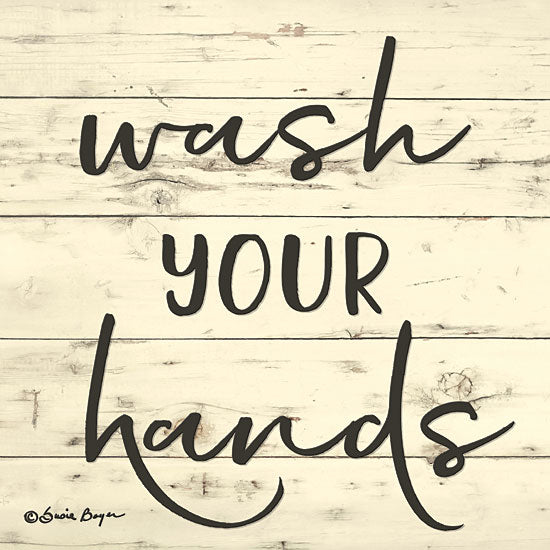 wash
YOUR
hands
© Susie Boyer